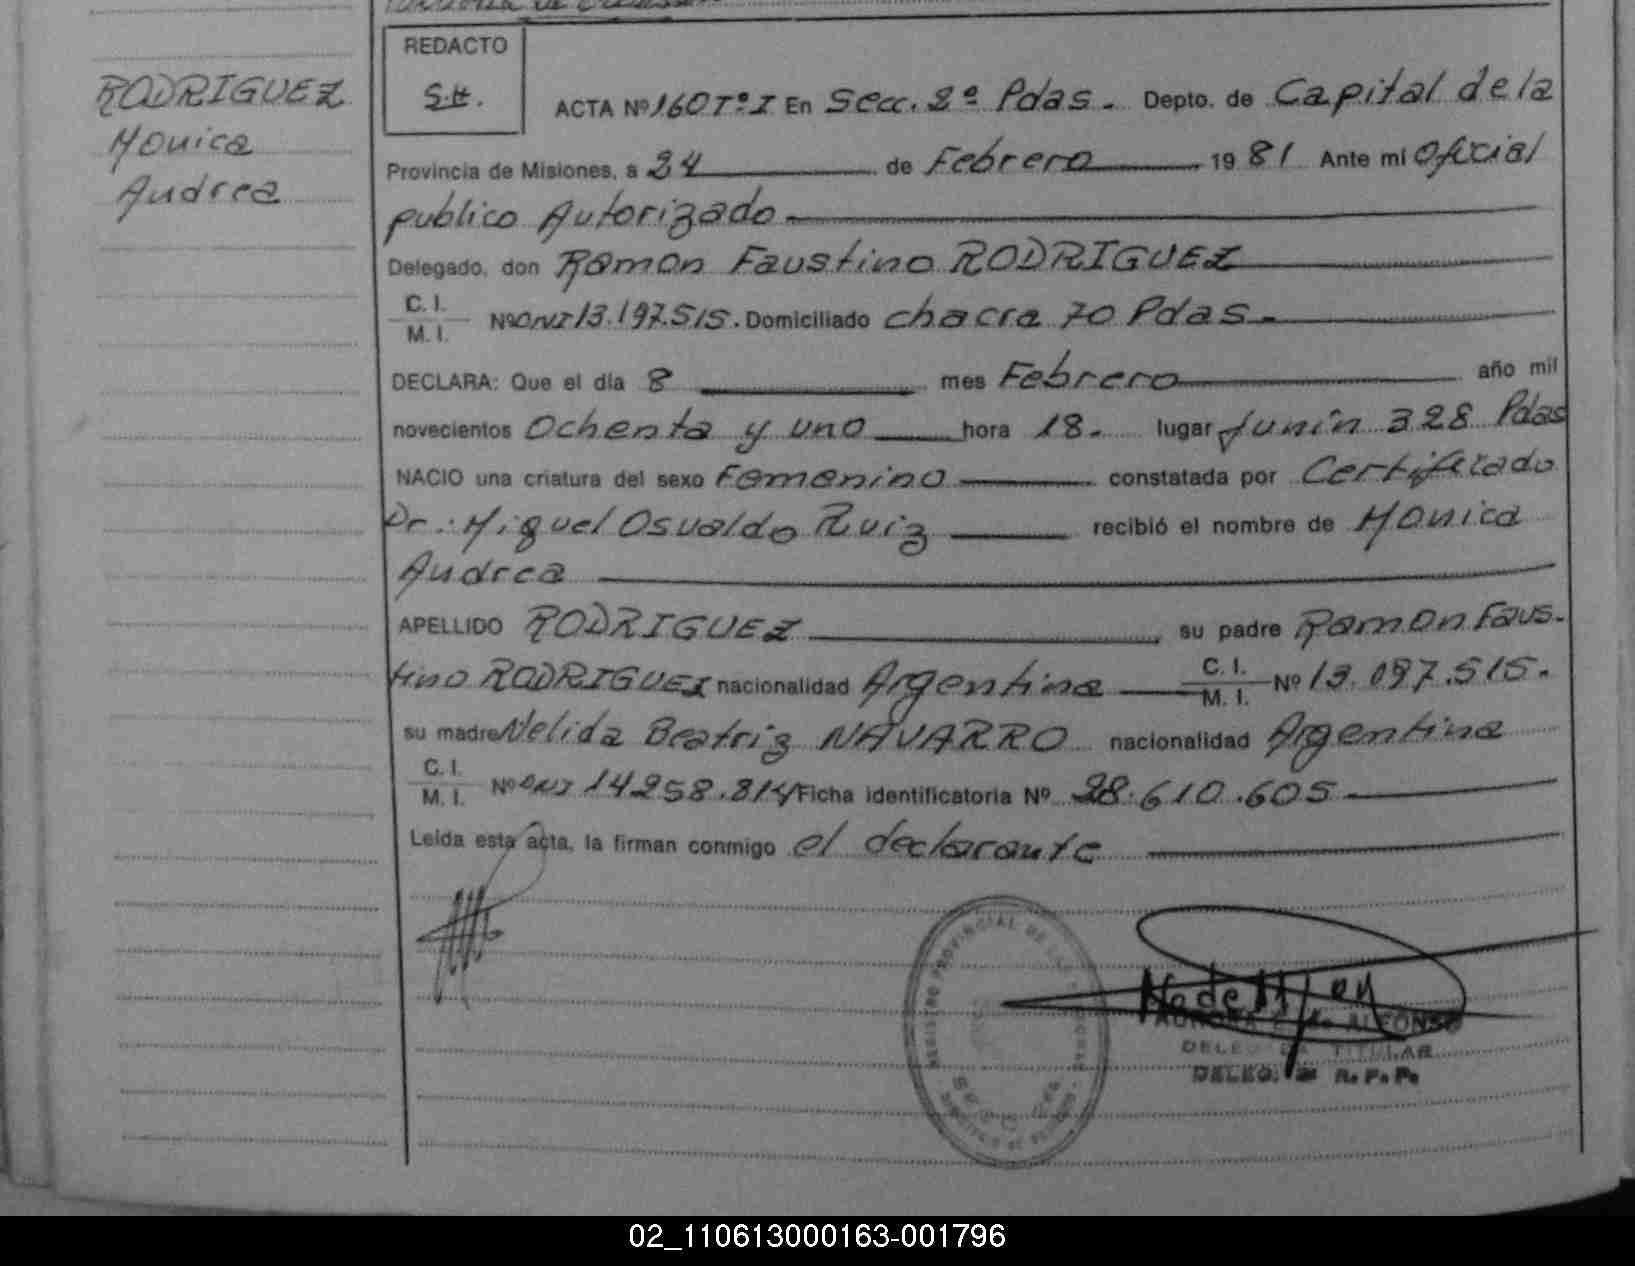 REDACTO
S.H.
RODRIGUEZ
Monica
Andrea
ACTA Nº 160 Tº I En Secc. 2ª Pdas. Depto. de Capital de la
Provincia de Misiones, a 24 de Febrero 1981 Ante mi Oficial
publico Autorizado
Delegado, don Ramon Faustino RODRIGUEZ
C. I.
M. I. Nº DNI 13.197.515. Domiciliado chacra 70 Pdas.
DECLARA: Que el día 8 mes Febrero año mil
novecientos Ochenta y uno hora 18. lugar Junin 328 Pdas
NACIO una criatura del sexo Femenino constatada por Certificado
Dr.: Miguel Osvaldo Ruiz recibió el nombre de Monica
Andrea
APELLIDO RODRIGUEZ su padre Ramon Faus-
tino RODRIGUEZ nacionalidad Argentina C. I. M. I. Nº 13.097.515.
su madre Nelida Beatriz NAVARRO nacionalidad Argentina
C. I.
M. I. Nº DNI 14.258.814 Ficha identificatoria Nº 28.610.605
Leida esta acta, la firman conmigo el declarante
REGISTRO PROVINCIAL DE LAS PERSONAS
ALFONSO
DELEGADA TITULAR
DELEG. R. P. P.
02_110613000163-001796